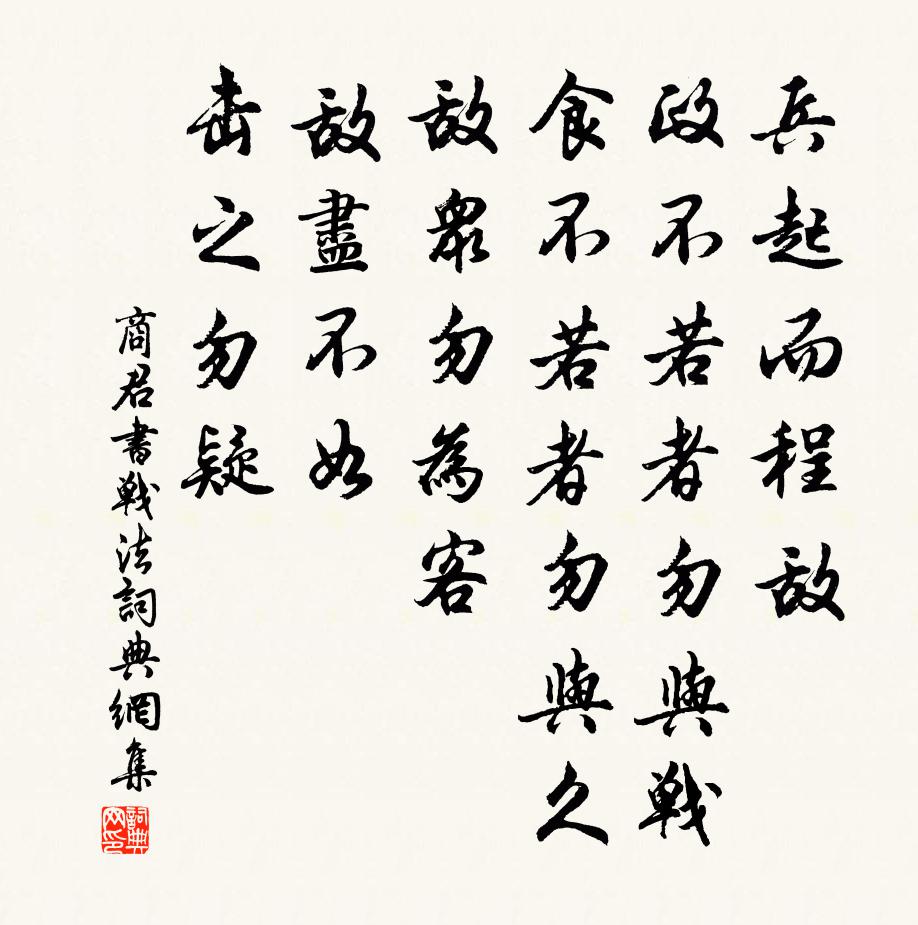 兵起而程敌
政不若者勿與戰
食不若者勿與久
敌眾勿為客
敌盡不如
击之勿疑
商君書戰法詞典網集
詞典网印